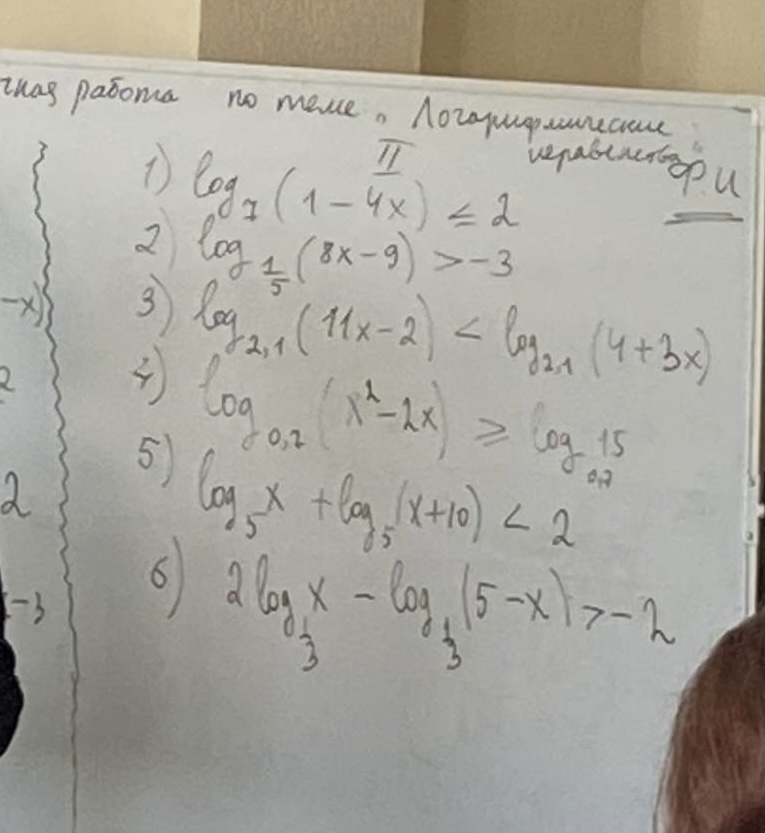 чная работа по теме „Логарифмические
неравенства“
II
Ф.И
1) log₇(1 – 4x) ≤ 2
2) log_{1/5}(8x – 9) > –3
3) log_{2,1}(11x – 2) < log_{2,1}(4 + 3x)
4) log_{0,7}(x² – 2x) ≥ log_{0,7} 15
5) log₅x + log₅(x+10) < 2
6) 2log_{1/3}x – log_{1/3}(5 – x) > –2
–x)
2
2
–3